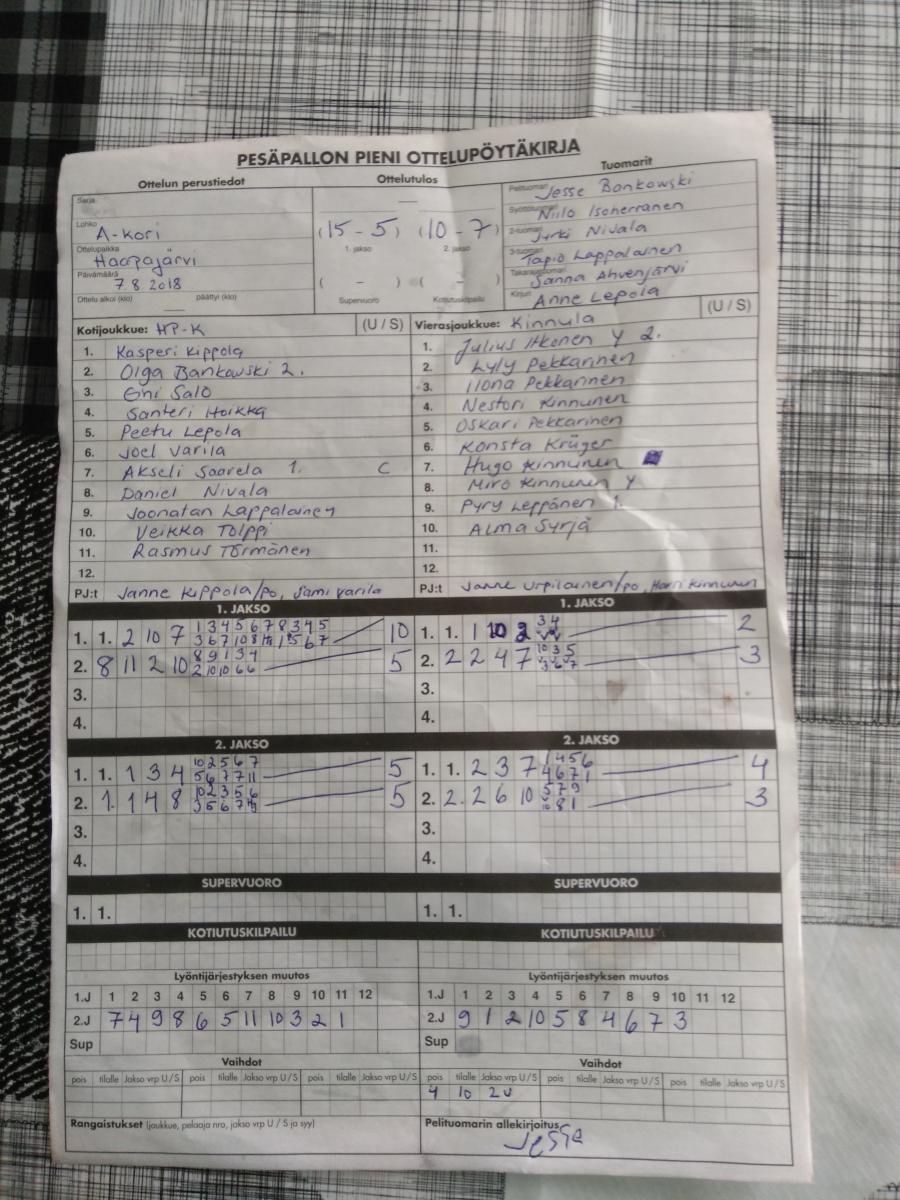 PESÄPALLON PIENI OTTELUPÖYTÄKIRJA
Ottelun perustiedot
Ottelutulos
Tuomarit
Sarja
Lohko A-kori
Ottelupaikka Haapajärvi
Päivämäärä 7.8.2018
Ottelu alkoi (klo) päättyi (klo)
(15 - 5) (10 - 7)
1. jakso 2. jakso
( - ) ( - )
Supervuoro Kotiutuskilpailu
Pelituomari Jesse Bankowski
Syöttötuomari Niilo Isoherranen
2-tuomari Jyrki Nivala
3-tuomari Tapio Lappalainen
Takarajatuomari Sanna Ahvenjärvi
Kirjuri Anne Lepola
Kotijoukkue: HP-K (U / S)
1. Kasperi Kippola
2. Olga Bankowski 2.
3. Eini Salo
4. Santeri Hoikka
5. Peetu Lepola
6. Joel Varila
7. Akseli Saarela 1. C
8. Daniel Nivala
9. Joonatan Lappalainen
10. Veikka Tolppi
11. Rasmus Törmänen
12.
PJ:t Janne Kippola/po, Sami Varila
Vierasjoukkue: Kinnula (U / S)
1. Julius Itkonen Y 2.
2. Lyly Pekkarinen
3. Ilona Pekkarinen
4. Nestori Kinnunen
5. Oskari Pekkarinen
6. Konsta Krüger
7. Hugo Kinnunen
8. Miro Kinnunen Y
9. Pyry Leppänen 1.
10. Alma Syrjä
11.
12.
PJ:t Janne Urpilainen/po, Harri Kinnunen
1. JAKSO
1. 1. 2 10 7 1 3 4 5 6 7 8 3 4 5 10
2. 8 11 2 10 8 9 1 3 4 5
2 10 10 6 6
3.
4.
1. JAKSO
1. 1. 1 10 2 3 4 2
2. 2 2 4 7 10 3 5 3
3.
4.
2. JAKSO
1. 1. 1 3 4 10 2 5 6 7 5
5 6 7 7 11
2. 1. 1 4 8 10 2 3 5 6 5
3.
4.
2. JAKSO
1. 1. 2 3 7 1 4 5 6 4
4 6 7 1
2. 2. 2 6 10 5 7 9 3
10 8 1
3.
4.
SUPERVUORO
1. 1.
SUPERVUORO
1. 1.
KOTIUTUSKILPAILU
KOTIUTUSKILPAILU
Lyöntijärjestyksen muutos
1.J 1 2 3 4 5 6 7 8 9 10 11 12
2.J 7 4 9 8 6 5 11 10 3 2 1
Sup
Lyöntijärjestyksen muutos
1.J 1 2 3 4 5 6 7 8 9 10 11 12
2.J 9 1 2 10 5 8 4 6 7 3
Sup
Vaihdot
pois tilalle Jakso vrp U / S pois tilalle Jakso vrp U / S pois tilalle Jakso vrp U / S
Vaihdot
pois tilalle Jakso vrp U / S pois tilalle Jakso vrp U / S pois tilalle Jakso vrp U / S
4 10 2U
Rangaistukset (joukkue, pelaaja nro, jakso vrp U / S ja syy)
Pelituomarin allekirjoitus